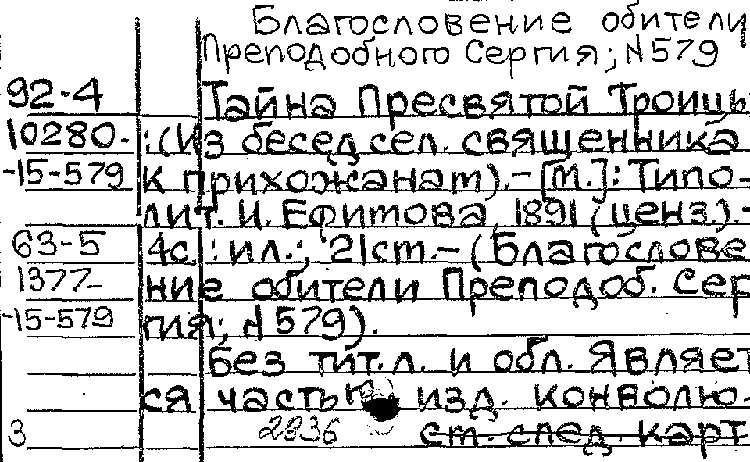 Благословение обители
Преподобного Сергия; N 579
92-4 Тайна Пресвятой Троицы
10280- :(Из бесед сел. священника
-15-579 к прихожанам).-[М.]: Типо-
лит. И. Ефимова, 1891 (ценз.).-
63-5 4с.: ил.; 21см.-(Благослове
1377- ние обители Преподоб. Сер
-15-579 гия; N 579).
Без тит.л. и обл. Являет
ся частью изд. конволю-
3 2836 см. след. карт.